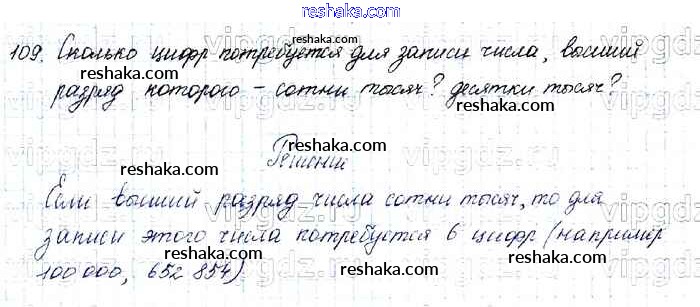 reshaka.ru
109. Сколько цифр потребуется для записи числа, высший
reshaka.ru
разряд которого - сотни тысяч? десятки тысяч?
reshaka.ru
vipgdz.ru
Решение
reshaka.ru
Если высший разряд числа сотни тысяч, то для
reshaka.ru
записи этого числа потребуется 6 цифр (например
100 000, 652 854)
reshaka.ru